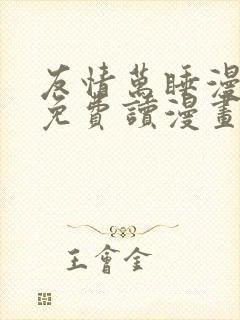 友情萬睡漫
免費讀漫畫
王會全